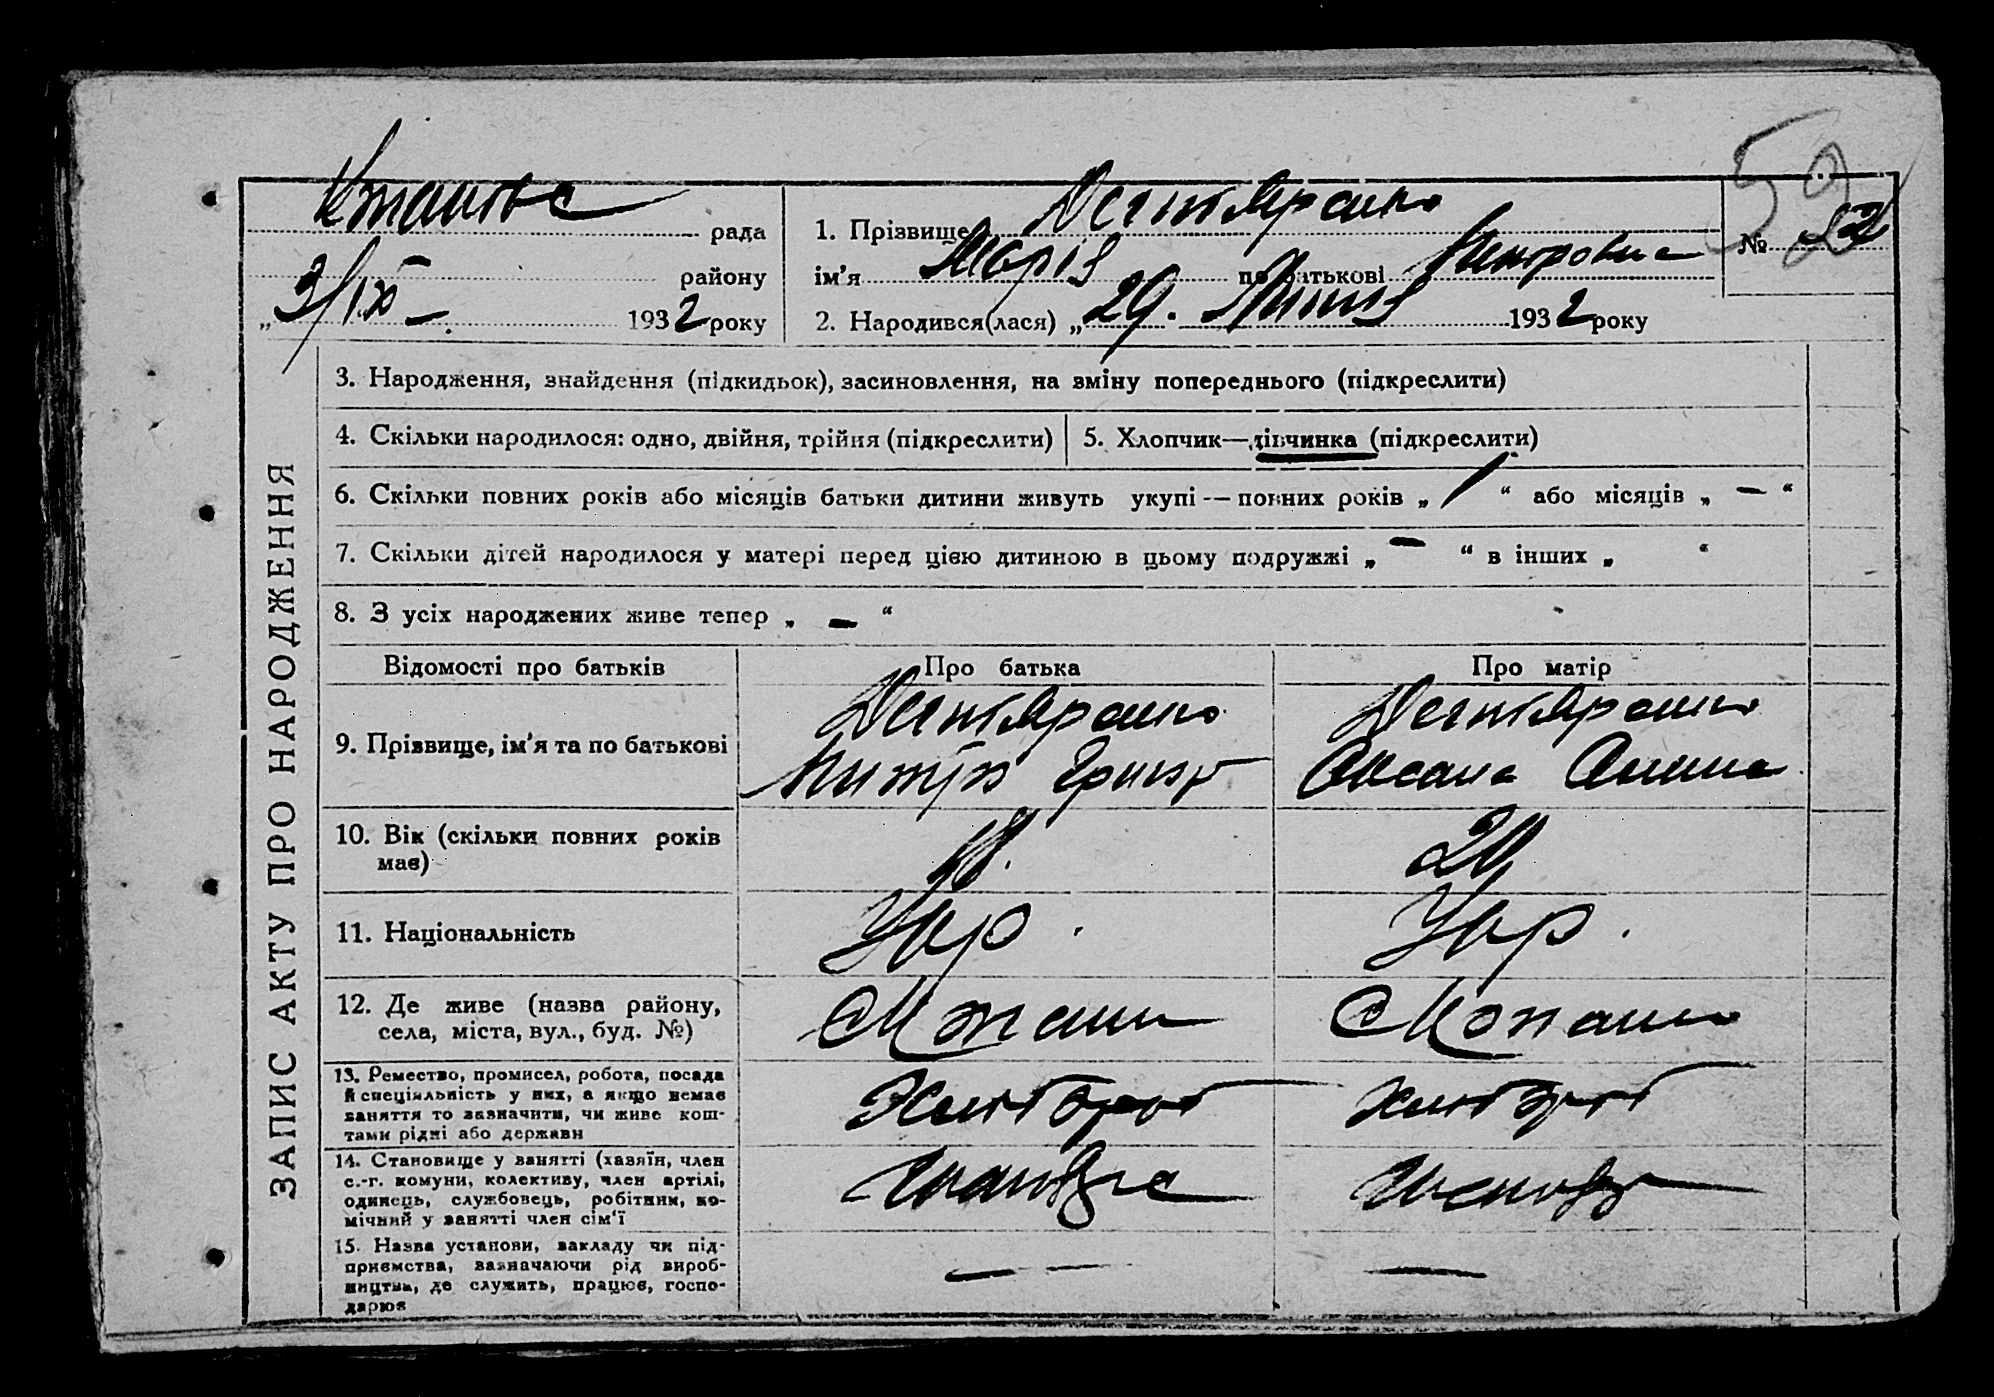 59
рада
1. Прізвище Дегтяренко
№ 52
району
ім'я Марія по батькові
„ 3/IX – 1932 року
2. Народився(лася) „ 29. Липня 1932 року
ЗАПИС АКТУ ПРО НАРОДЖЕННЯ
3. Народження, знайдення (підкидьок), засиновлення, на зміну попереднього (підкреслити)
4. Скільки народилося: одно, двійня, трійня (підкреслити) 5. Хлопчик—дівчинка (підкреслити)
6. Скільки повних років або місяців батьки дитини живуть укупі — повних років „ 1 “ або місяців „ – “
7. Скільки дітей народилося у матері перед цією дитиною в цьому подружжі „ – “ в інших „ “
8. З усіх народжених живе тепер „ – “
Відомості про батьків Про батька Про матір
9. Прізвище, ім'я та по батькові
Дегтяренко
Дегтяренко
Оксана
10. Вік (скільки повних років
має)
18.
20
11. Національність Укр. Укр.
12. Де живе (назва району,
села, міста, вул., буд. №)
13. Ремество, промисел, робота, посада
й спеціяльність у них, а якщо немає
заняття то зазначити, чи живе кош-
тами рідні або держави
Хлібороб
Хлібороб
14. Становище у занятті (хазяїн, член
с.-г. комуни, колективу, член артілі,
одинець, службовець, робітник, по-
мічний у занятті член сім'ї
15. Назва установи, закладу чи під-
приємства, зазначаючи рід вироб-
ництва, де служить, працює, госпо-
дарює
— —